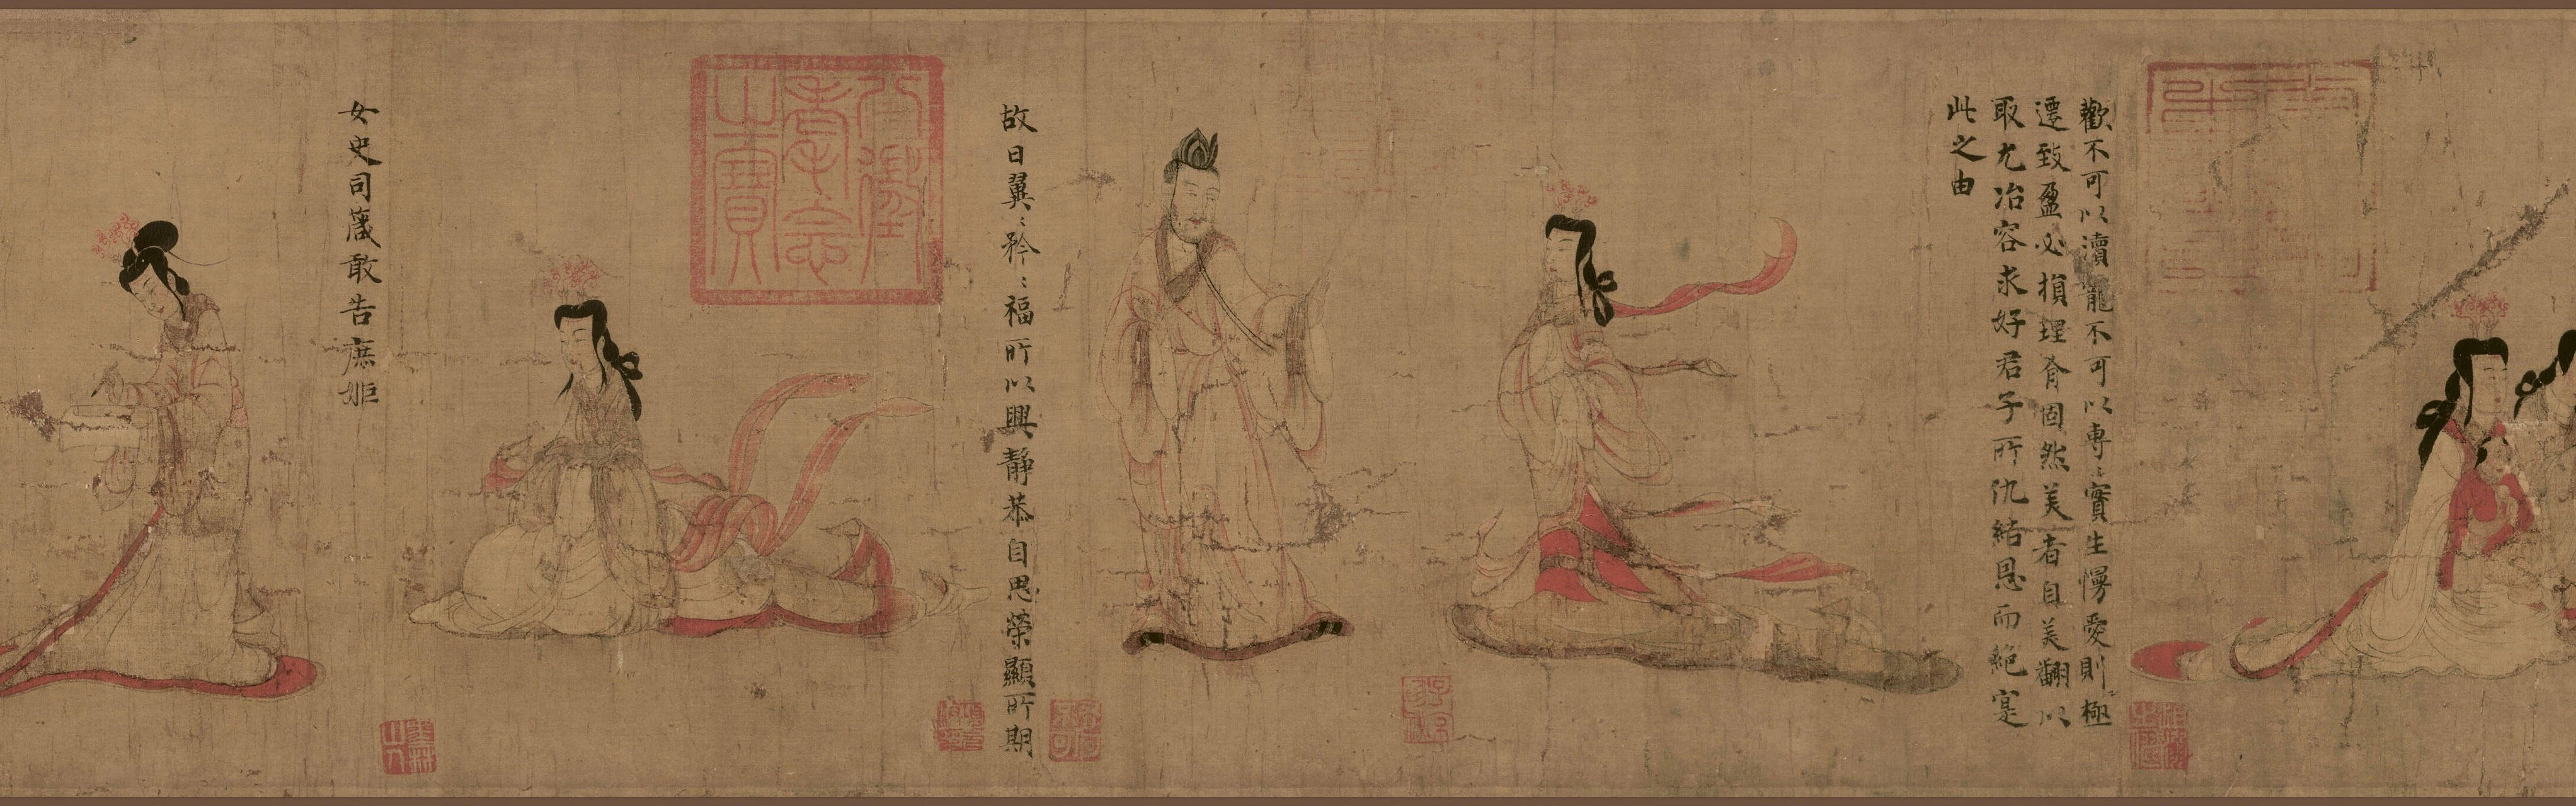 歡不可以瀆寵不可以專=實生慢愛則極
遷致盈必損理有固然美者自美翩以
取尤冶容求好君子所仇結恩而絶寔
此之由
故曰翼=矜=福所以興靜恭自思榮顯所期
女史司箴敢告庶姬
八徵
耄念
之寶